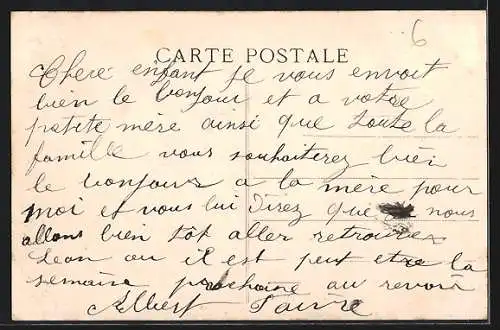 6
CARTE POSTALE
Chere enfant je vous envoit
bien le bonjour et a votre
petite mère ainsi que toute la
famille vous souhaiterez bien
le bonjour a la mère pour
moi et vous lui direz que nous
allons bien tôt aller retrouver
Leon ou il est peut etre la
semaine prochaine au revoir
Albert Favre